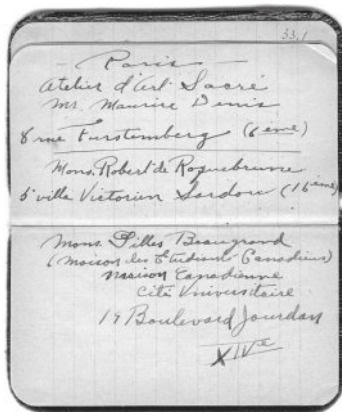 33,1
— Paris —
Atelier d'Art Sacré
Mr. Maurice Denis
8 rue Furstemberg (6eme)
Mons. Robert de Roquebrune
5 villa Victorien Sardou (16eme)
Mons. Gilles Beaugrand
(Maison des Etudiants Canadiens)
Maison Canadienne
Cité Universitaire
19 Boulevard Jourdan
XIVe